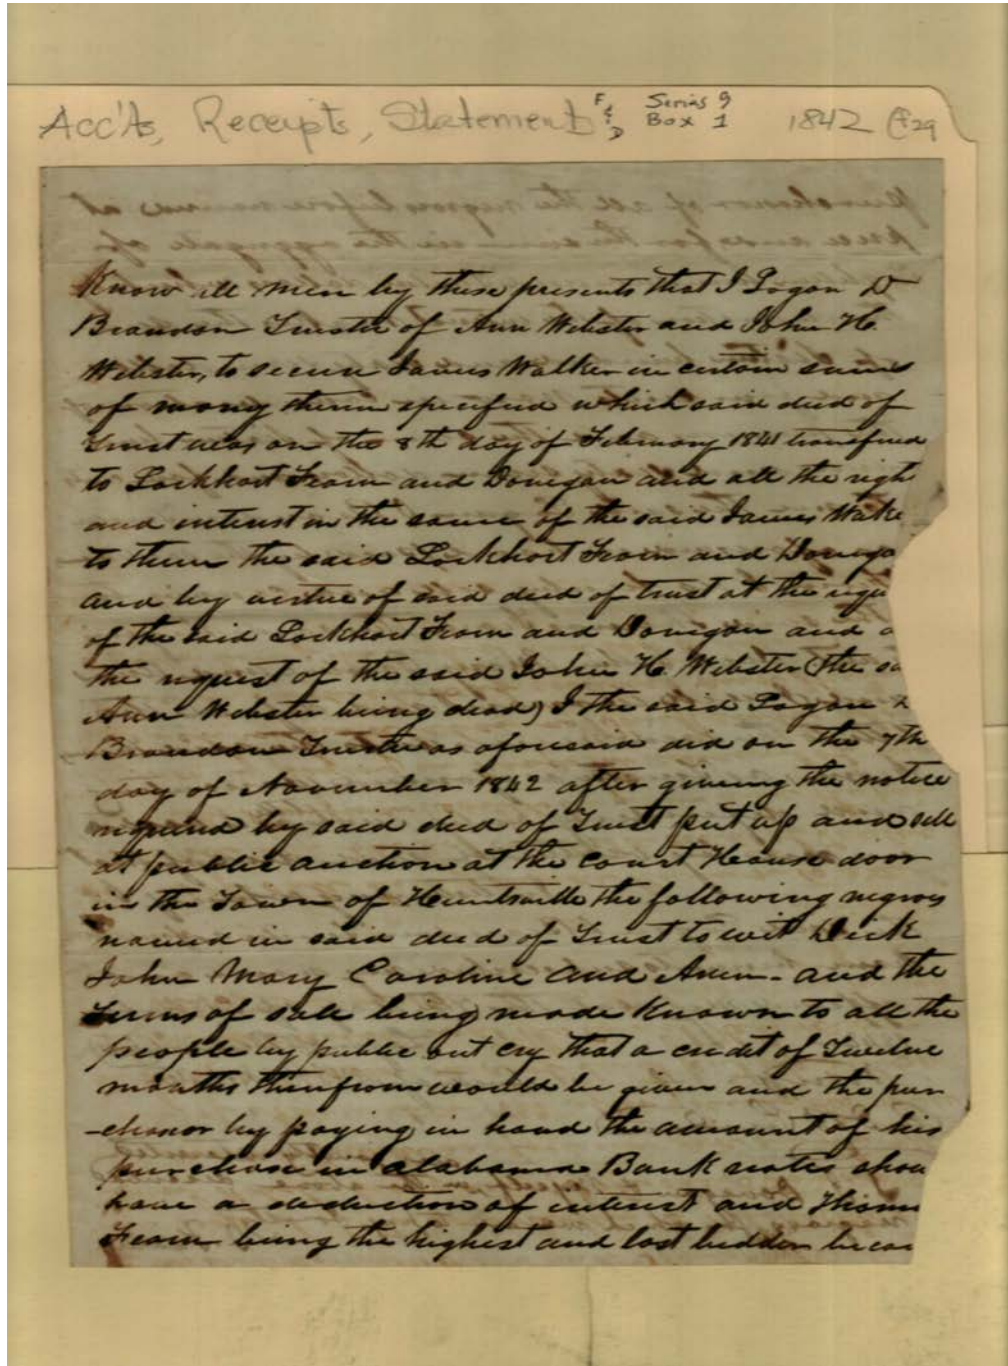 Acc'ts, Receipts, Statements F & D Series 9 Box 1 1842 F29
Know all men by these presents that I Logan D
Brandon Trustee of Ann Webster and John H.
Webster, to secure James Walker in certain sums
of mony therein specified which said deed of
Trust was on the 8th day of February 1841 transfered
to Lockhart Fearn and Donegan and all the righ
and interest in the same of the said James Walke
to them the said Lockhart Fearn and Donega
and by virtue of said deed of trust at the reque
of the said Lockhart Fearn and Donegan and a
the request of the said John H. Webster (the sa
Ann Webster being dead) I the said Logan
Brandon Trustee as aforesaid did on the 7th
day of November 1842 after giving the notice
required by said deed of Trust put up and sell
at public auction at the Court House door
in the Town of Huntsville the following negroes
named in said deed of Trust to wit Dick
John Mary Caroline and Ann - and the
Terms of sale being made Known to all the
people by public out cry that a credit of Twelve
months therefrom would be given and the pur
-chaser by paying in hand the amount of his
purchase in Alabama Bank notes shou
have a deduction of interest and Thom
Fearn being the highest and last bidder becam